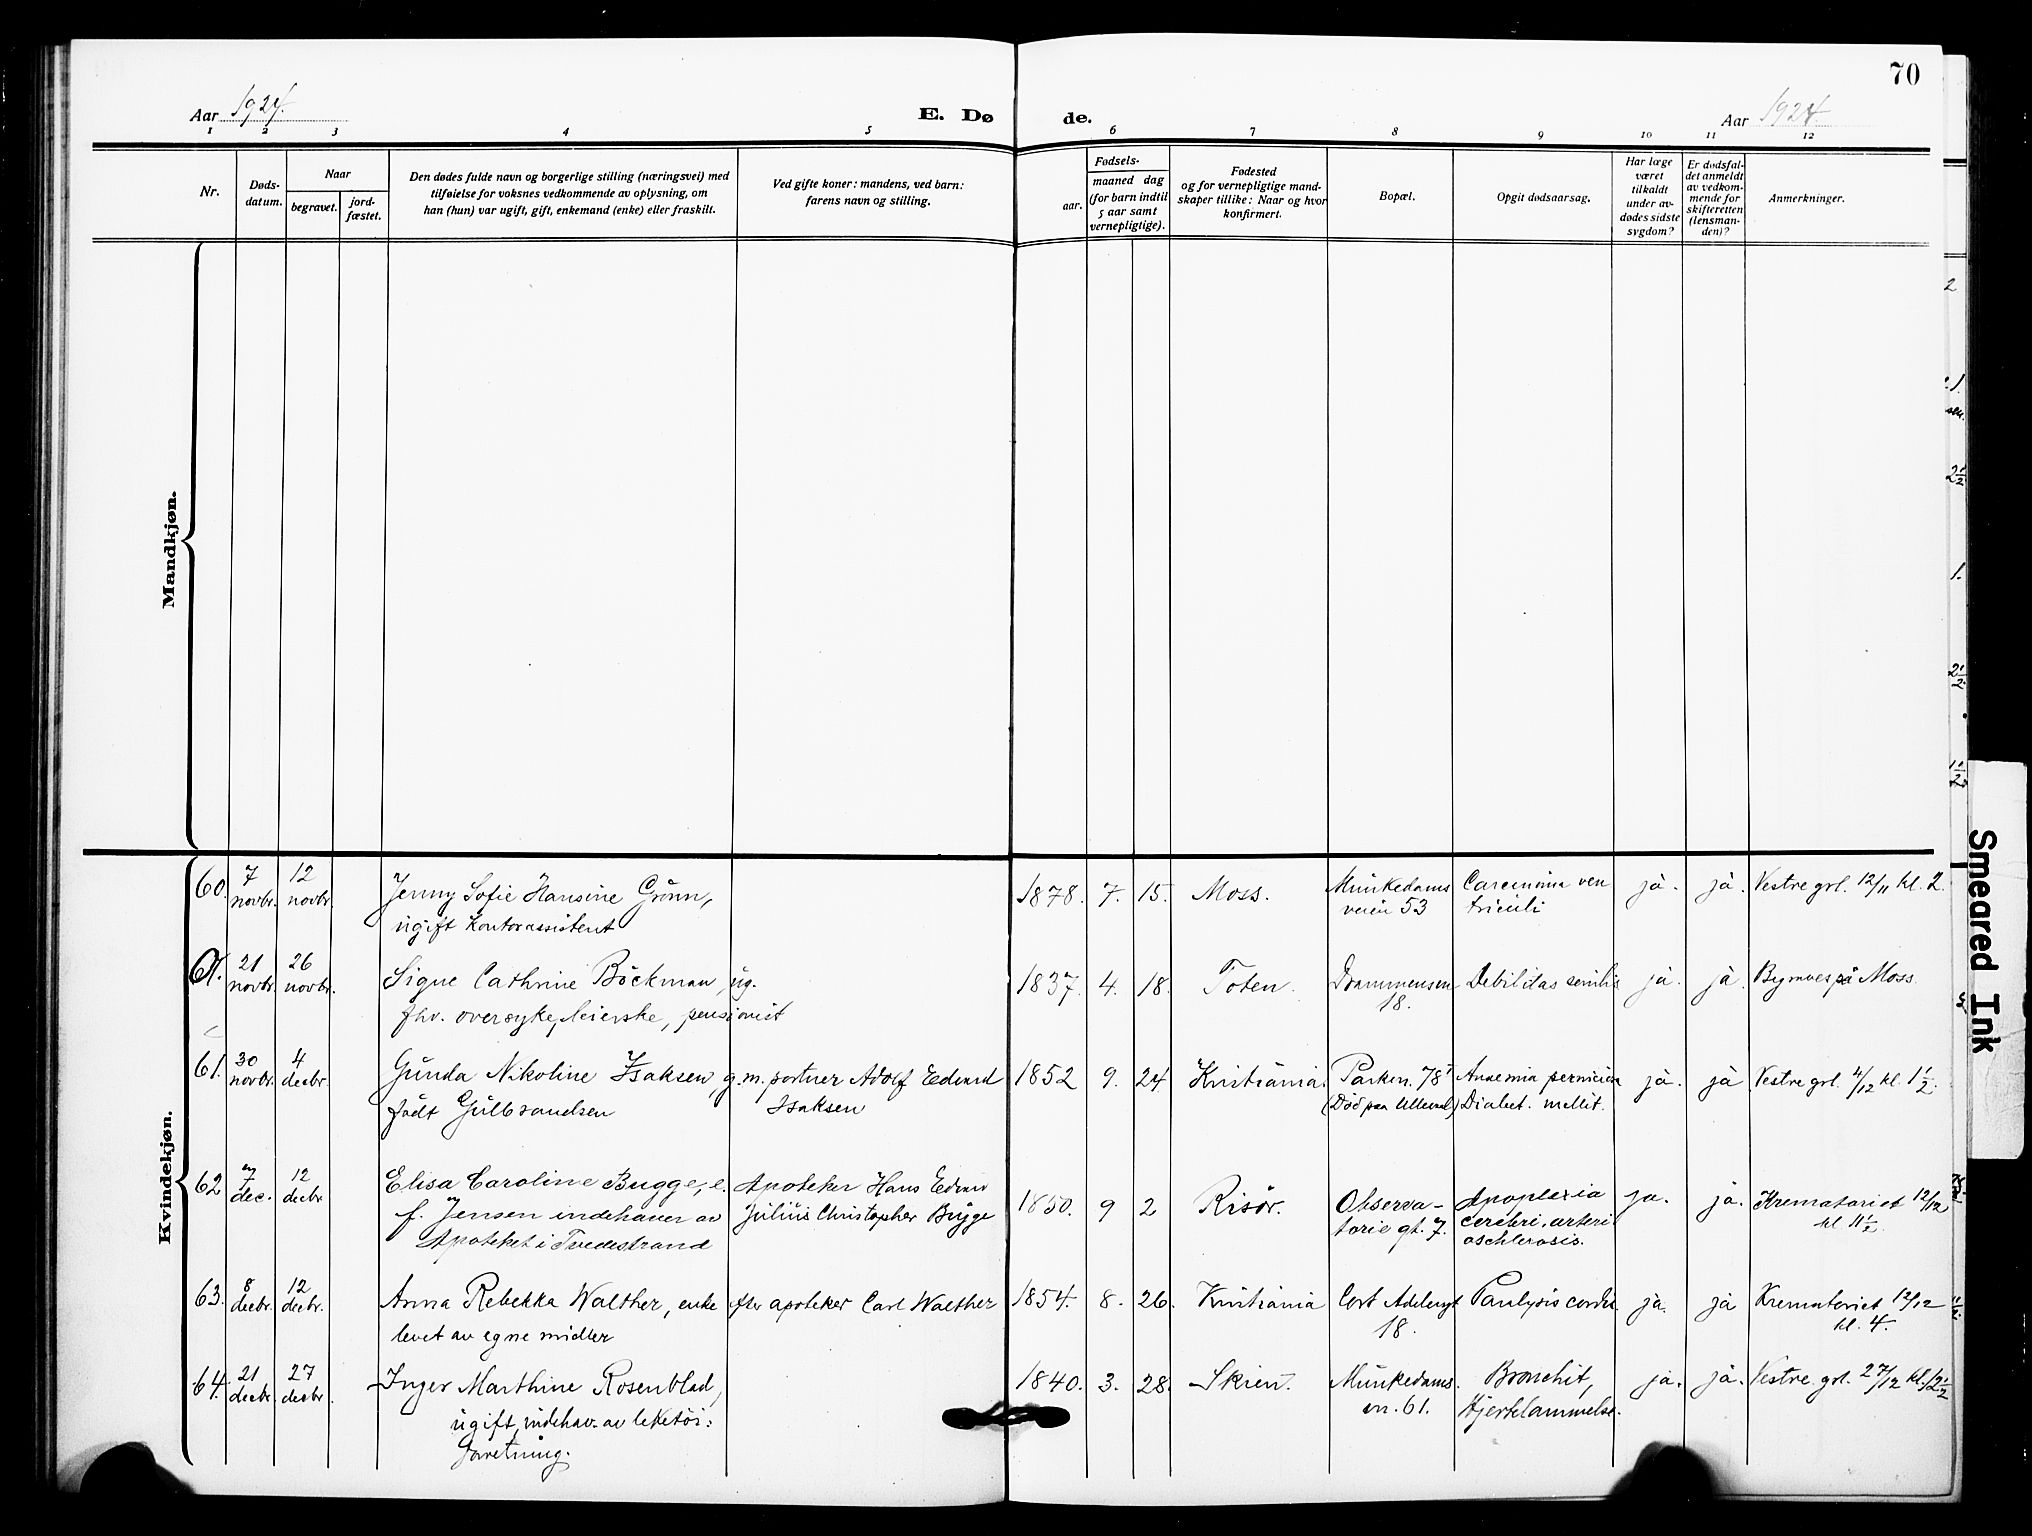 70
Aar 1924.
E. Dø
de.
Aar 1924
1 2 3 4 5 6 7 8 9 10 11 12
Nr.
Døds-
datum.
Naar
begravet.
jord-
fæstet.
Den dødes fulde navn og borgerlige stilling (næringsvei) med
tilføielse for voksnes vedkommende av oplysning, om
han (hun) var ugift, gift, enkemand (enke) eller fraskilt.
Ved gifte koner: mandens, ved barn:
farens navn og stilling.
Fødsels-
aar.
maaned dag
(for barn indtil
5 aar samt
vernepligtige).
Fødested
og for vernepligtige mand-
skaper tillike: Naar og hvor
konfirmert.
Bopæl.
Opgit dødsaarsag.
Har læge
været
tilkaldt
under av-
dødes sidste
sygdom?
Er dødsfal-
det anmeldt
av vedkom-
mende for
skifteretten
(lensman-
den)?
Anmerkninger.
Mandkjøn.
Kvindekjøn.
60. 7 novbr. 12 novbr. Jenny Sofie Hansine Grünn, 1878. 7. 15. Moss. Munkedams Carcinoma ven ja. ja. Vestre grl. 12/11 kl. 2.
ugift kontorassistent veien 53 triculi
21 novbr. 26 novbr. Signe Cathrine Böckman, ug. 1837. 4. 18. Toten. Drammensvn Debilitas senilis ja. ja. Bymoes på Moss
fhv. oversykepleierske, pensionist 18.
61. 30 novbr. 4 decbr. Gunda Nikoline Isaksen, g. m. portner Adolf Edvard 1852 9. 24 Kristiania. Parkvn. 78 Anaemia perniciosa ja. ja Vestre grl. 4/12 kl. 1 1/2.
født Gulbrandsen Isaksen (Död paa Ullevaal) Diabet. mellit.
62 7 dec. 12 decbr. Elisa Caroline Bugge, e. Apoteker Hans Edvard 1850. 9 2 Risör. Observa- Apoplexia ja. ja. Krematoriet 12/12
f. Jensen indehaver av Julius Christopher Bugge torie gt. 7. cerebri. arteri kl 11 1/2.
Apoteket i Tvedestrand oschlerosis.
63. 8 decbr. 12 decbr. Anna Rebekka Walther, enke efter apoteker Carl Walther 1854. 8. 26. Kristiania Cort Adelersgt Paralysis cordis ja. ja Krematoriet 12/12
levet av egne midler 18. kl. 4.
64. 21 decbr. 27 decbr. Inger Marthine Rosenblad, 1840. 3. 28. Skien. Munkedams. Bronchit, ja. ja. Vestre grl. 27/12 kl. 12 1/2
ugift, indehav. av leketöi: vn. 61. Hjertelammelse.
forretning.
Smeared Ink